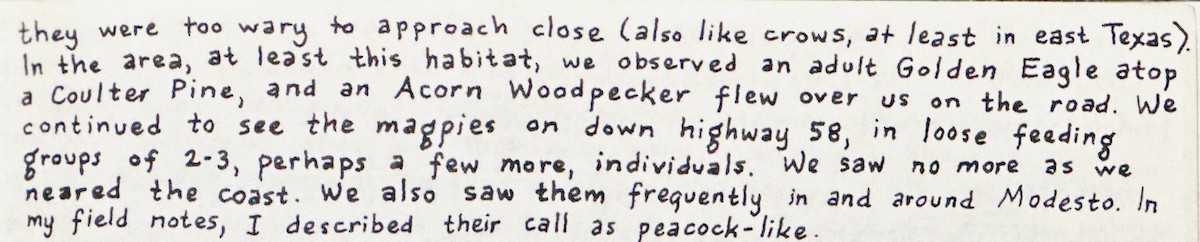 they were too wary to approach close (also like crows, at least in east Texas).
In the area, at least this habitat, we observed an adult Golden Eagle atop
a Coulter Pine, and an Acorn Woodpecker flew over us on the road. We
continued to see the magpies on down highway 58, in loose feeding
groups of 2-3, perhaps a few more, individuals. We saw no more as we
neared the coast. We also saw them frequently in and around Modesto. In
my field notes, I described their call as peacock-like.